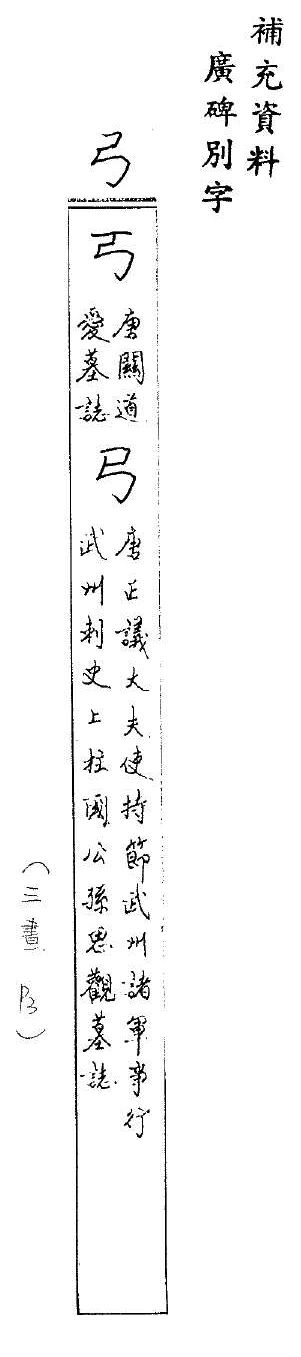 補充資料
廣碑別字
弓
𢎗
唐關道
愛墓誌
弓
唐正議大夫使持節武州諸軍事行
武州刺史上柱國公孫思觀墓誌
（三畫 P3）